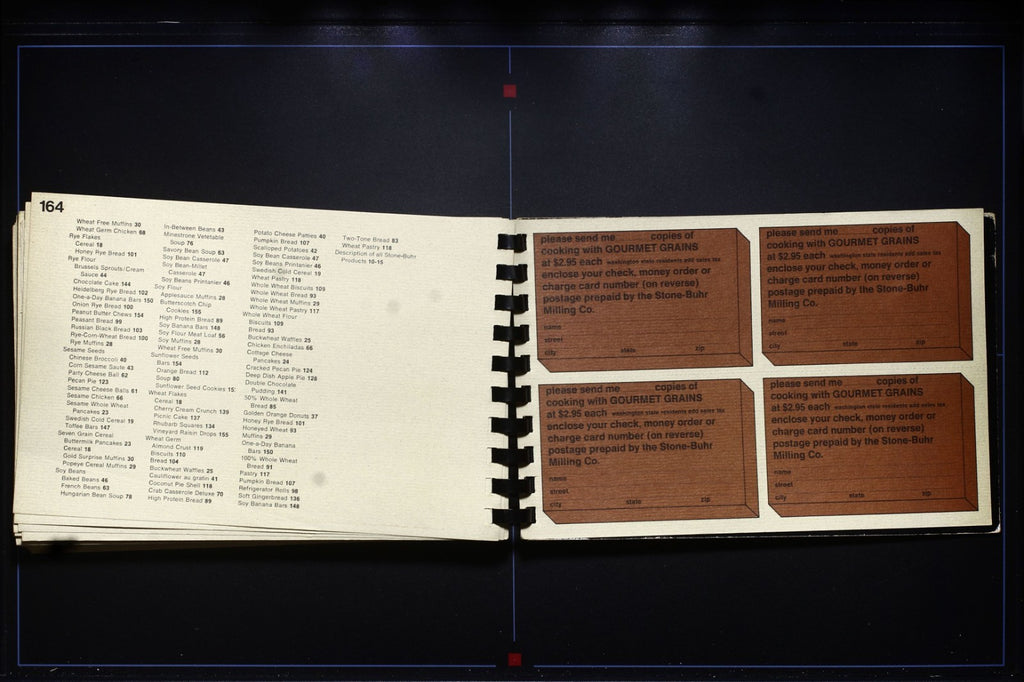 164
Wheat Free Muffins 30
Wheat Germ Chicken 68
Rye Flakes
Cereal 18
Honey Rye Bread 101
Rye Flour
Brussels Sprouts/Cream
Sauce 44
Chocolate Cake 144
Heidelberg Rye Bread 102
One-a-Day Banana Bars 150
Onion Rye Bread 100
Peanut Butter Chews 154
Peasant Bread 99
Russian Black Bread 103
Rye-Corn-Wheat Bread 100
Rye Muffins 28
Sesame Seeds
Chinese Broccoli 40
Corn Sesame Saute 43
Party Cheese Ball 62
Pecan Pie 123
Sesame Cheese Balls 61
Sesame Chicken 66
Sesame Whole Wheat
Pancakes 23
Swedish Cold Cereal 19
Toffee Bars 147
Seven Grain Cereal
Buttermilk Pancakes 23
Cereal 18
Gold Surprise Muffins 30
Popeye Cereal Muffins 29
Soy Beans
Baked Beans 46
French Beans 63
Hungarian Bean Soup 78
In-Between Beans 43
Minestrone Vegetable
Soup 76
Savory Bean Soup 63
Soy Bean Casserole 47
Soy Bean-Millet
Casserole 47
Soy Beans Printanier 46
Soy Flour
Applesauce Muffins 28
Butterscotch Chip
Cookies 155
High Protein Bread 89
Soy Banana Bars 148
Soy Flour Meat Loaf 56
Soy Muffins 28
Wheat Free Muffins 30
Sunflower Seeds
Bars 154
Orange Bread 112
Soup 80
Sunflower Seed Cookies 15
Wheat Flakes
Cereal 18
Cherry Cream Crunch 139
Picnic Cake 137
Rhubarb Squares 134
Vineyard Raisin Drops 155
Wheat Germ
Almond Crust 119
Biscuits 110
Bread 104
Buckwheat Waffles 25
Cauliflower au gratin 41
Coconut Pie Shell 118
Crab Casserole Deluxe 70
High Protein Bread 89
Potato Cheese Patties 40
Pumpkin Bread 107
Scalloped Potatoes 42
Soy Bean Casserole 47
Soy Beans Printanier 46
Swedish Cold Cereal 19
Wheat Pastry 118
Whole Wheat Biscuits 109
Whole Wheat Bread 93
Whole Wheat Muffins 29
Whole Wheat Pastry 117
Whole Wheat Flour
Biscuits 109
Bread 93
Buckwheat Waffles 25
Chicken Enchiladas 66
Cottage Cheese
Pancakes 24
Cracked Pecan Pie 124
Deep Dish Apple Pie 128
Double Chocolate
Pudding 141
50% Whole Wheat
Bread 85
Golden Orange Donuts 37
Honey Rye Bread 101
Honeyed Wheat 93
Muffins 29
One-a-Day Banana
Bars 150
100% Whole Wheat
Bread 91
Pastry 117
Pumpkin Bread 107
Refrigerator Rolls 98
Soft Gingerbread 136
Soy Banana Bars 148
Two-Tone Bread 83
Wheat Pastry 118
Description of all Stone-Buhr
Products 10-15
please send me copies of
cooking with GOURMET GRAINS
at $2.95 each washington state residents add sales tax
enclose your check, money order or
charge card number (on reverse)
postage prepaid by the Stone-Buhr
Milling Co.
name
street
city state zip
please send me copies of
cooking with GOURMET GRAINS
at $2.95 each washington state residents add sales tax
enclose your check, money order or
charge card number (on reverse)
postage prepaid by the Stone-Buhr
Milling Co.
name
street
city state zip
please send me copies of
cooking with GOURMET GRAINS
at $2.95 each washington state residents add sales tax
enclose your check, money order or
charge card number (on reverse)
postage prepaid by the Stone-Buhr
Milling Co.
name
street
city state zip
please send me copies of
cooking with GOURMET GRAINS
at $2.95 each washington state residents add sales tax
enclose your check, money order or
charge card number (on reverse)
postage prepaid by the Stone-Buhr
Milling Co.
name
street
city state zip